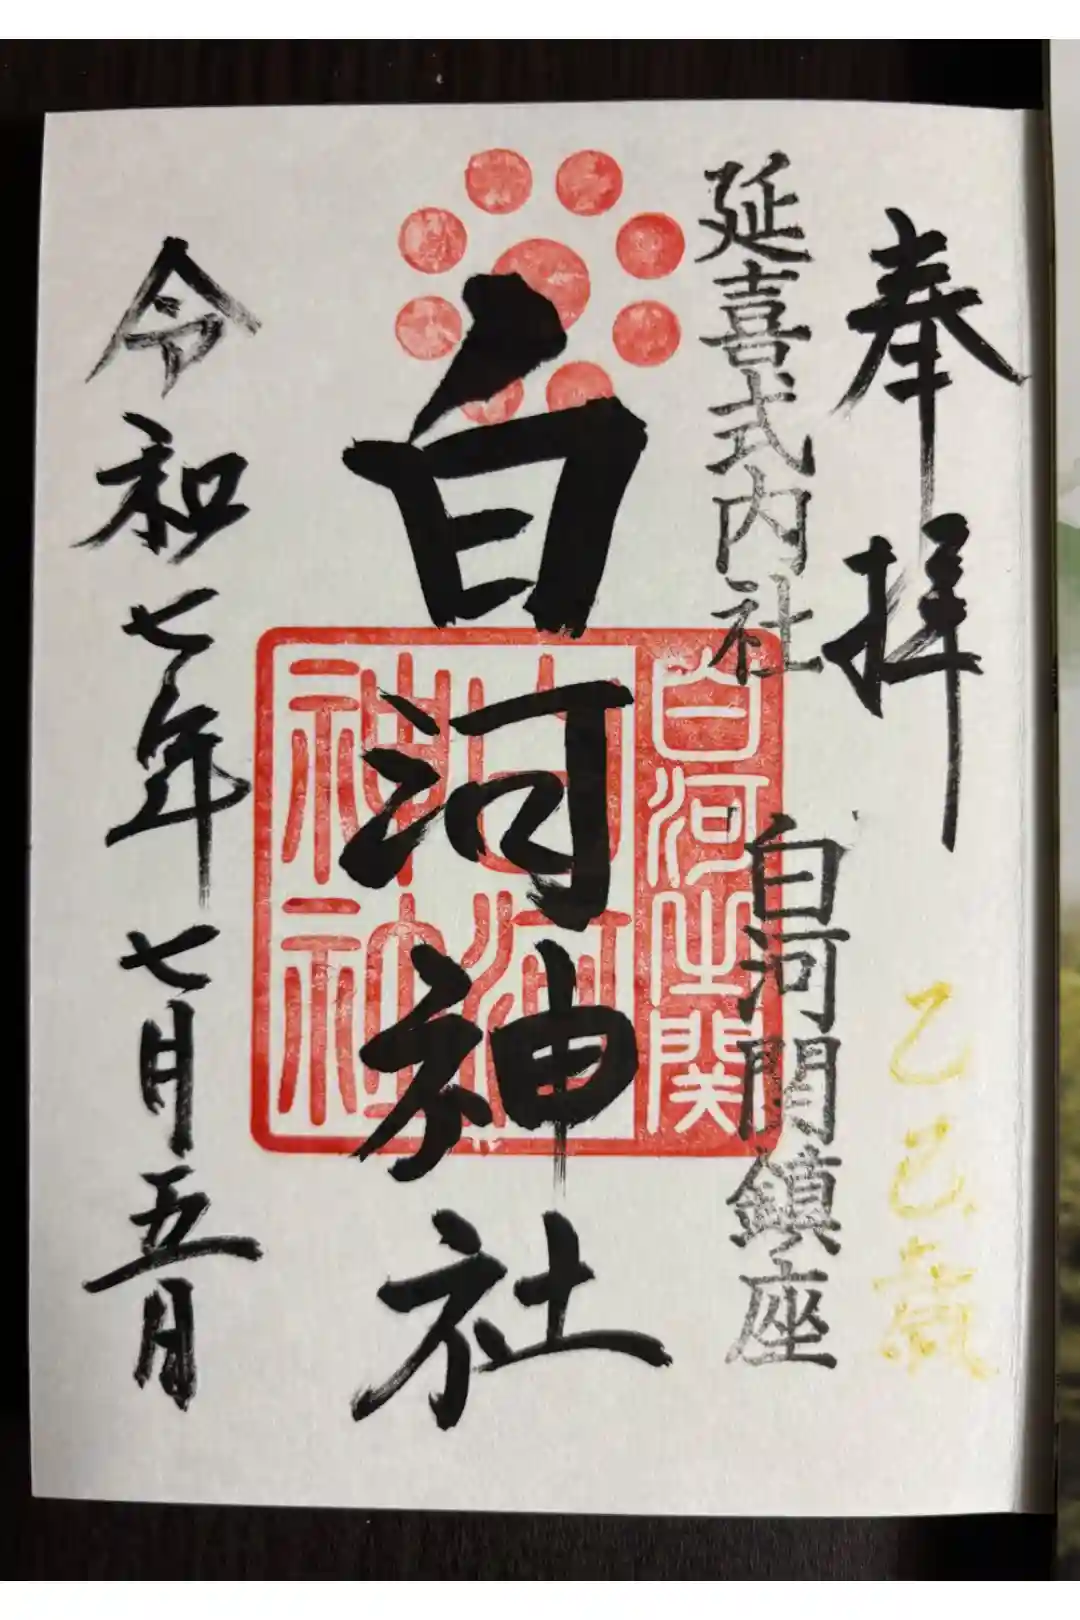 奉拝
乙巳歳
延喜式内社
白河関鎮座
白河神社
白河之関
白河
神社
令和七年七月五日